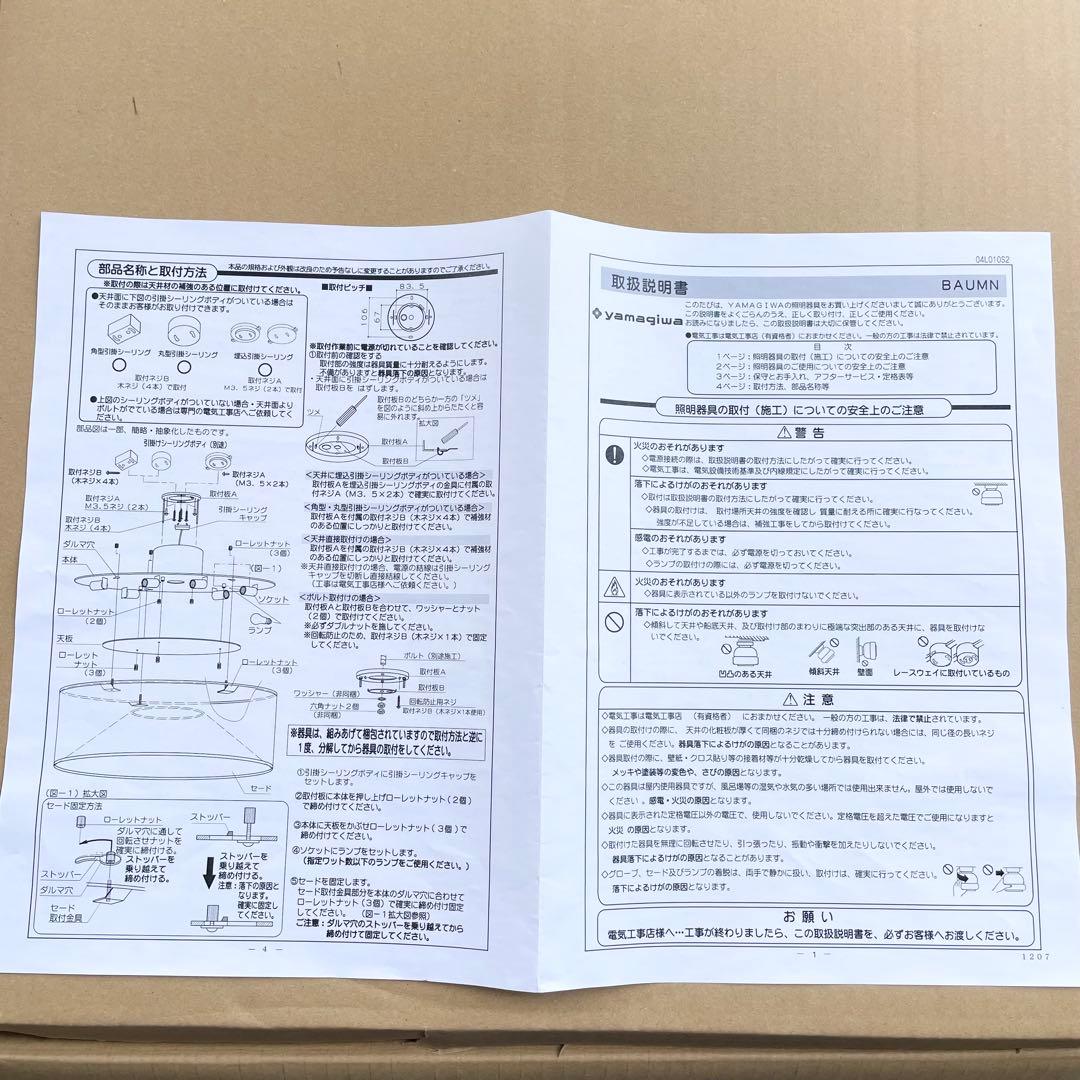 部品名称と取付方法
本品の規格および外観は改良のため予告なしに変更することがありますのでご了承ください。
※取付の際は天井材の補強のある位置に取付けてください。
●天井面に下図の引掛シーリングボディがついている場合は
そのままお客様がお取り付けできます。
角型引掛シーリング
丸型引掛シーリング
埋込引掛シーリング
取付ネジB
木ネジ(4本)で取付
取付ネジA
M3.5ネジ(2本)で取付
●上図のシーリングボディがついていない場合・天井面より
ボルトがでている場合は専門の電気工事店へご依頼してく
ださい。
部品図は一部、簡略・抽象化したものです。
引掛けシーリングボディ(別途)
取付ネジB
(木ネジ×4本)
取付ネジA
(M3.5×2本)
取付板A
取付ネジA
M3.5ネジ(2本)
引掛シーリング
キャップ
取付ネジB
木ネジ(4本)
ダルマ穴
ローレットナット
(3個)
本体
(図-1)
ソケット
ローレットナット
(2個)
ランプ
天板
ローレット
ナット
(3個)
ローレットナット
(3個)
セード
(図-1)拡大図
セード固定方法
ローレットナット
ダルマ穴に通して
回転させナットを
確実に締付ける。
ストッパーを
乗り越えて
締め付ける。
ストッパー
ダルマ穴
セード
取付金具
ストッパー
ストッパーを
乗り越えて
締め付ける。
注意:落下の原因と
なります。
確実に固定し
てください。
■取付ピッチ■
83.5
106
67
※取付作業前に電源が切れていることを確認してください。
①取付前の確認をする
取付部の強度は器具質量に十分耐えるようにします。
不備がありますと器具落下の原因となります。
・天井面に引掛シーリングボディがついている場合は
取付板Bを はずします。
取付板Bのどちらか一方の「ツメ」
を図のように斜め上からたたくと容
易に外れます。
拡大図
ツメ
取付板A
取付板B
<天井に埋込引掛シーリングボディがついている場合>
取付板Aを埋込引掛シーリングボディの金具に付属の取
付ネジA(M3.5×2本)で確実に取付けてください。
<角型・丸型引掛シーリングボディがついている場合>
取付板Aを付属の取付ネジB(木ネジ×4本)で補強材
のある位置にしっかりと取付けてください。
<天井直接取付けの場合>
取付板Aを付属の取付ネジB(木ネジ×4本)で補強材
のある位置にしっかりと取付けてください。
※天井直接取付けの場合、電源の結線は引掛シーリング
キャップを切断し直接結線してください。
(工事は電気工事店様へご依頼ください。)
<ボルト取付けの場合>
取付板Aと取付板Bを合わせて、ワッシャーとナット
(2個)で取付けてください。
※必ずダブルナットを施してください。
※回転防止のため、取付ネジB(木ネジ×1本)で固定
してください。
ボルト(別途施工)
取付板A
取付板B
ワッシャー(非同梱)
六角ナット2個
(非同梱)
回転防止用ネジ
取付ネジB(木ネジ×1本使用)
※器具は、組みあげて梱包されていますので取付方法と逆に
1度、分解してから器具の取付をしてください。
①引掛シーリングボディに引掛シーリングキャップを
セットします。
②取付板に本体を押し上げローレットナット(2個)
で締め付けてください。
③本体に天板をかぶせローレットナット(3個)で
締め付けてください。
④ソケットにランプをセットします。
(指定ワット数以下のランプをご使用ください。)
⑤セードを固定します。
セード取付金具部分を本体のダルマ穴に合わせて
ローレットナット(3個)で確実に締め付け固定
してください。 (図-1拡大図参照)
ご注意:ダルマ穴のストッパーを乗り越えてから
締め付けて固定してください。
- 4 -
04L010S2
取扱説明書
BAUMN
yamagiwa
このたびは、YAMAGIWAの照明器具をお買い上げくださいまして誠にありがとうございます。
この説明書をよくごらんのうえ、正しく取り付け、正しくご使用ください。
お読みになりましたら、この取扱説明書は大切に保管してください。
●電気工事は電気工事店(有資格者)におまかせください。一般の方の工事は法律で禁止されています。
目 次
1ページ:照明器具の取付(施工)についての安全上のご注意
2ページ:照明器具のご使用についての安全上のご注意
3ページ:保守とお手入れ、アフターサービス・定格表等
4ページ:取付方法、部品名称等
照明器具の取付(施工)についての安全上のご注意
警告
火災のおそれがあります
◇電源接続の際は、取扱説明書の取付方法にしたがって確実に行ってください。
◇電気工事は、電気設備技術基準及び内線規定にしたがって確実に行ってください。
落下によるけがのおそれがあります
◇取付は取扱説明書の取付方法にしたがって確実に行ってください。
◇器具の取付けは、 取付場所天井の強度を確認し 質量に耐える所に確実に行なってください。
強度が不足している場合は、補強工事をしてから取付けてください。
感電のおそれがあります
◇工事が完了するまでは、必ず電源を切っておいてください。
◇ランプの取付けの際には、必ず電源を切ってください。
火災のおそれがあります
◇器具に表示されている以外のランプを取付けないでください。
落下によるけがのおそれがあります
◇傾斜して天井や船底天井、及び取付け部のまわりに極端な突出部のある天井に、器具を取付けな
いでください。
凹凸のある天井
傾斜天井
壁面
レースウェイに取付いているもの
注意
◇電気工事は電気工事店 (有資格者) におまかせください。 一般の方の工事は、法律で禁止されています。
◇器具の取付けの際に、 天井の化粧板が厚くて同梱のネジでは十分締め付けられない場合には、同じ径の長いネジ
を ご使用ください。器具落下によるけがの原因となることがあります。
◇器具取付けの際に、壁紙・クロス貼り等の接着材等が十分乾燥してから器具を取付けてください。
メッキや塗装等の変色や、さびの原因となります。
◇この器具は屋内使用器具ですが、風呂場等の湿気や水気の多い場所では使用出来ません。屋外では使用しないで
ください。感電・火災の原因となります。
◇器具に表示された定格電圧以外の電圧で、使用しないでください。定格電圧を超えた電圧でご使用になりますと
火災 の原因となります。
◇取付けた器具を無理に回転させたり、引っ張ったり、振動や衝撃を加えたりしないでください。
器具落下によるけがの原因となることがあります。
◇グローブ、セード及びランプの着脱は、両手で静かに扱い、取付けは、確実に行ってください。
落下によるけがの原因となります。
お願い
電気工事店様へ…工事が終わりましたら、この取扱説明書を、必ずお客様へお渡しください。
- 1 -
1207